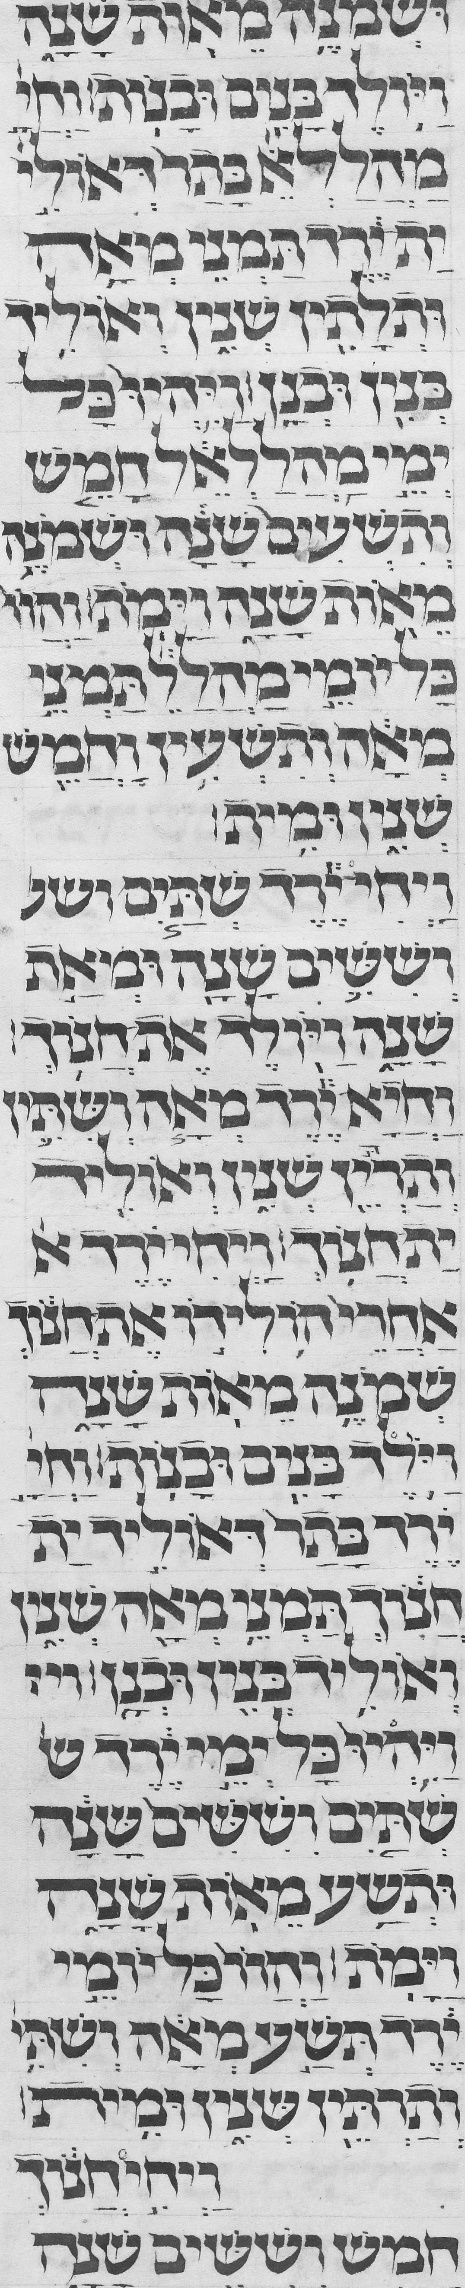 ושמנה מאות שנה
ויולד בנים ובנות׃ וחי
מהללא בתר דאולי
ית ירד תמני מאה
ותלתין שנין ואוליד
בנין ובנן׃ ויהיו כל
ימי מהללאל חמש
ותשעים שנה ושמנה
מאות שנה וימת׃ והוו
כל יומי מהללל תמני
מאה ותשעין וחמש
שנין ומית׃
ויחי ירד שתים ושע
וששים שנה ומאת
שנה ויולד את חנוך׃
וחיא ירד מאה ושתין
ותרין שנין ואוליד
ית חנוך׃ ויחי ירד א
אחרי הולידו את חנוך
שמנה מאות שנה
ויולד בנים ובנות׃ וחי
ירד בתר דאוליד ית
חנוך תמני מאה שנין
ואוליד בנין ובנן׃ ויי
ויהיו כל ימי ירד ש
שתים וששים שנה
ותשע מאות שנה
וימת׃ והוו כל יומי
ירד תשע מאה ושתי
ותרתין שנין ומית׃
ויחי חנוך
חמש וששים שנה